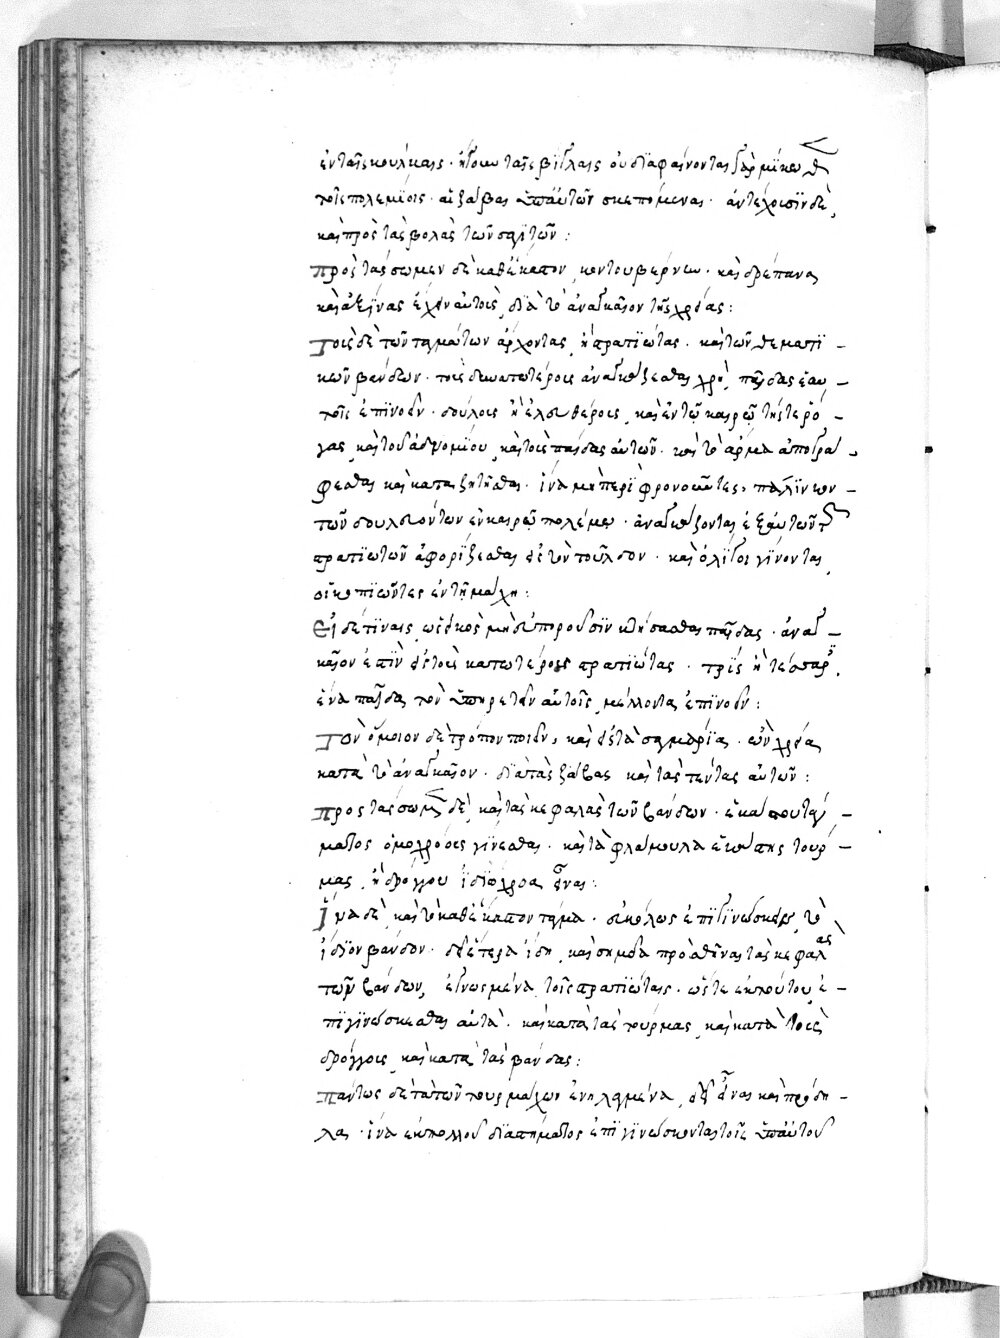 ἐν ταῖς σκουλκαις · ἤγουν ταῖς βίγλαις οὐ διαφαίνονται γὰρ μήκοθεν
τοῖς πολεμίοις · αἱ ζάβαι ὑπ' αὐτῶν σκεπόμεναι · ἀντέχουσιν δὲ
καὶ πρὸς τὰς βολὰς τῶν σαγιτῶν :
πρὸς τάσσωμεν δὲ καθ' ἕκαστον κοντουβέρνιν · καὶ δρέπανα
καὶ ἀξίνας ἔχειν αὐτοῖς διὰ τὸ ἀναγκαῖον τῆς χρείας :
Τοὺς δὲ τῶν ταγμάτων ἄρχοντας ἢ στρατιώτας · καὶ τῶν θεματι –
κῶν βάνδων · τοὺς δυνατωτέρους ἀναγκάζεσθαι χρὴ παῖδας ἑαυ –
τοῖς ἐπινοεῖν · δούλους ἢ ἐλευθέρους, καὶ ἐν τῷ καιρῷ τῆς τε ῥό –
γας καὶ τοῦ ἀδνουμίου καὶ τοὺς παῖδας αὐτῶν · καὶ τὰ ἄρματα ἀπογρά
φεσθαι καὶ καταζητεῖσθαι · ἵνα μὴ περιφρονοῦντες, πάλιν ἐκ –
τῶν δουλευόντων ἐν καιρῷ πολέμου · ἀναγκάζονται ἐξ αὐτῶν τῶν
στρατιωτῶν ἀφορίζεσθαι εἰς τὸν τοῦλδον · καὶ ὀλίγοι γίνονται
οἱ κοπιῶντες ἐν τῇ μάχῃ :
Εἰ δέ τινες, ὡς εἰκός μὴ εὐποροῦσιν κτήσασθαι παῖδας · ἀναγ –
καῖον ἐστιν εἰς τοὺς κατωτέρους στρατιώτας · τρεῖς ἢ τέσσαρις
ἕνα παῖδα τὸν ὑπηρετεῖν αὐτοῖς μέλλοντα ἐπινοεῖν :
Τὸν ὅμοιον δὲ τρόπον ποιεῖν, καὶ εἰς τὰ σαγμάρια · εὐχρέα
κατὰ τὸ ἀναγκαῖον · διὰ τὰς ζάβας καὶ τὰς τέντας αὐτῶν :
προστάσσωμεν δὲ καὶ τὰς κεφαλὰς τῶν βάνδων · ἑκάστου τάγ –
ματος ὁμοχρόους γίνεσθαι · καὶ τὰ φλάμουλα ἑκάστης τούρ –
μας ἢ δρόγγου ἰδιόχροα εἶναι :
Ἵνα δὲ καὶ τὸ καθ' ἕκαστον τάγμα · εὐκόλως ἐπιγινώσκει τὸ
ἴδιον βάνδον · δεῖ ἕτερα εἴδη καὶ σημεῖα προσθεῖναι τὰς κεφαλὰς
τῶν βάνδων, ἐγνωσμένα τοῖς στρατιώταις · ὥστε ἐκ τούτου ἐ –
πιγινώσκεσθαι αὐτὰ · καὶ κατὰ τὰς τούρμας, καὶ κατὰ τοὺς
δρόγγους καὶ κατὰ τὰς βάνδας :
πάντως δὲ τὰ τῶν τουρμάρχων ἐνηλαγμένα, δεῖ εἶναι καὶ πρόδη –
λα · ἵνα ἐκ πολλοῦ διαστήματος ἐπιγινώσκονται τοῖς ὑπ' αὐτοῦ